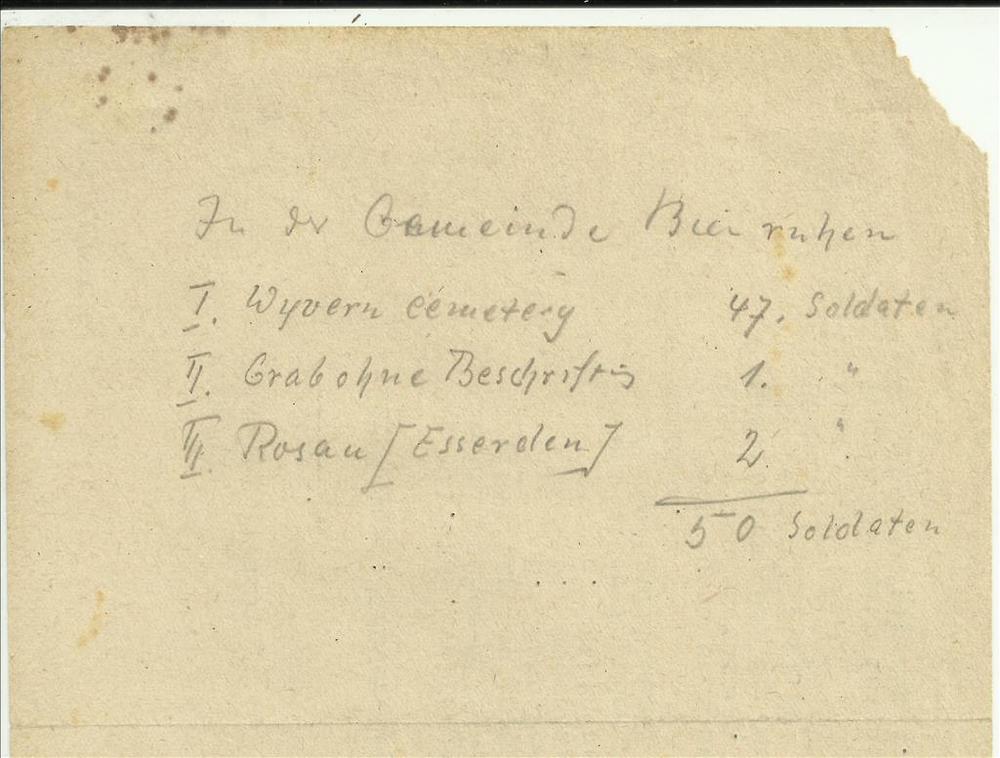 In der Gemeinde Bier ruhen
I. Wyvern Cemetery 47. Soldaten
II. Grab ohne Beschriftg 1. "
III. Rosau [Esserden] 2. "
50 Soldaten